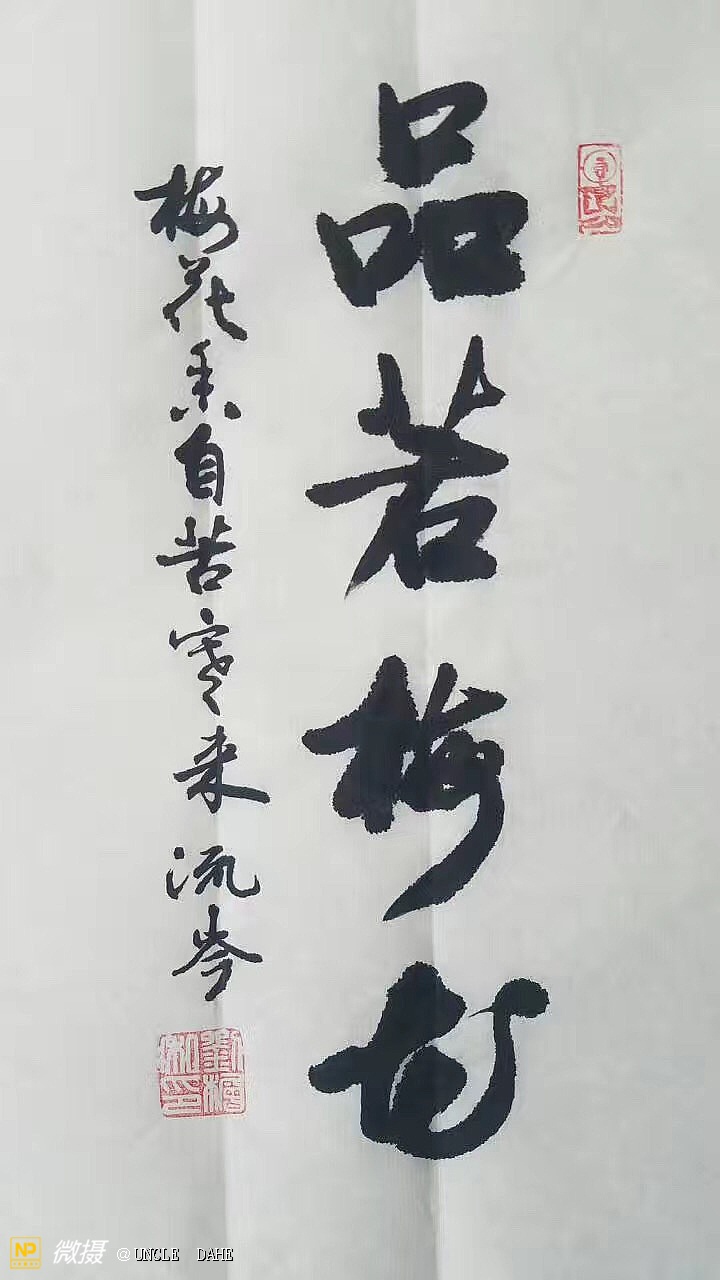 品若梅花
梅花香自苦寒来 流岑
NP 微摄 @UNCLE DAHE